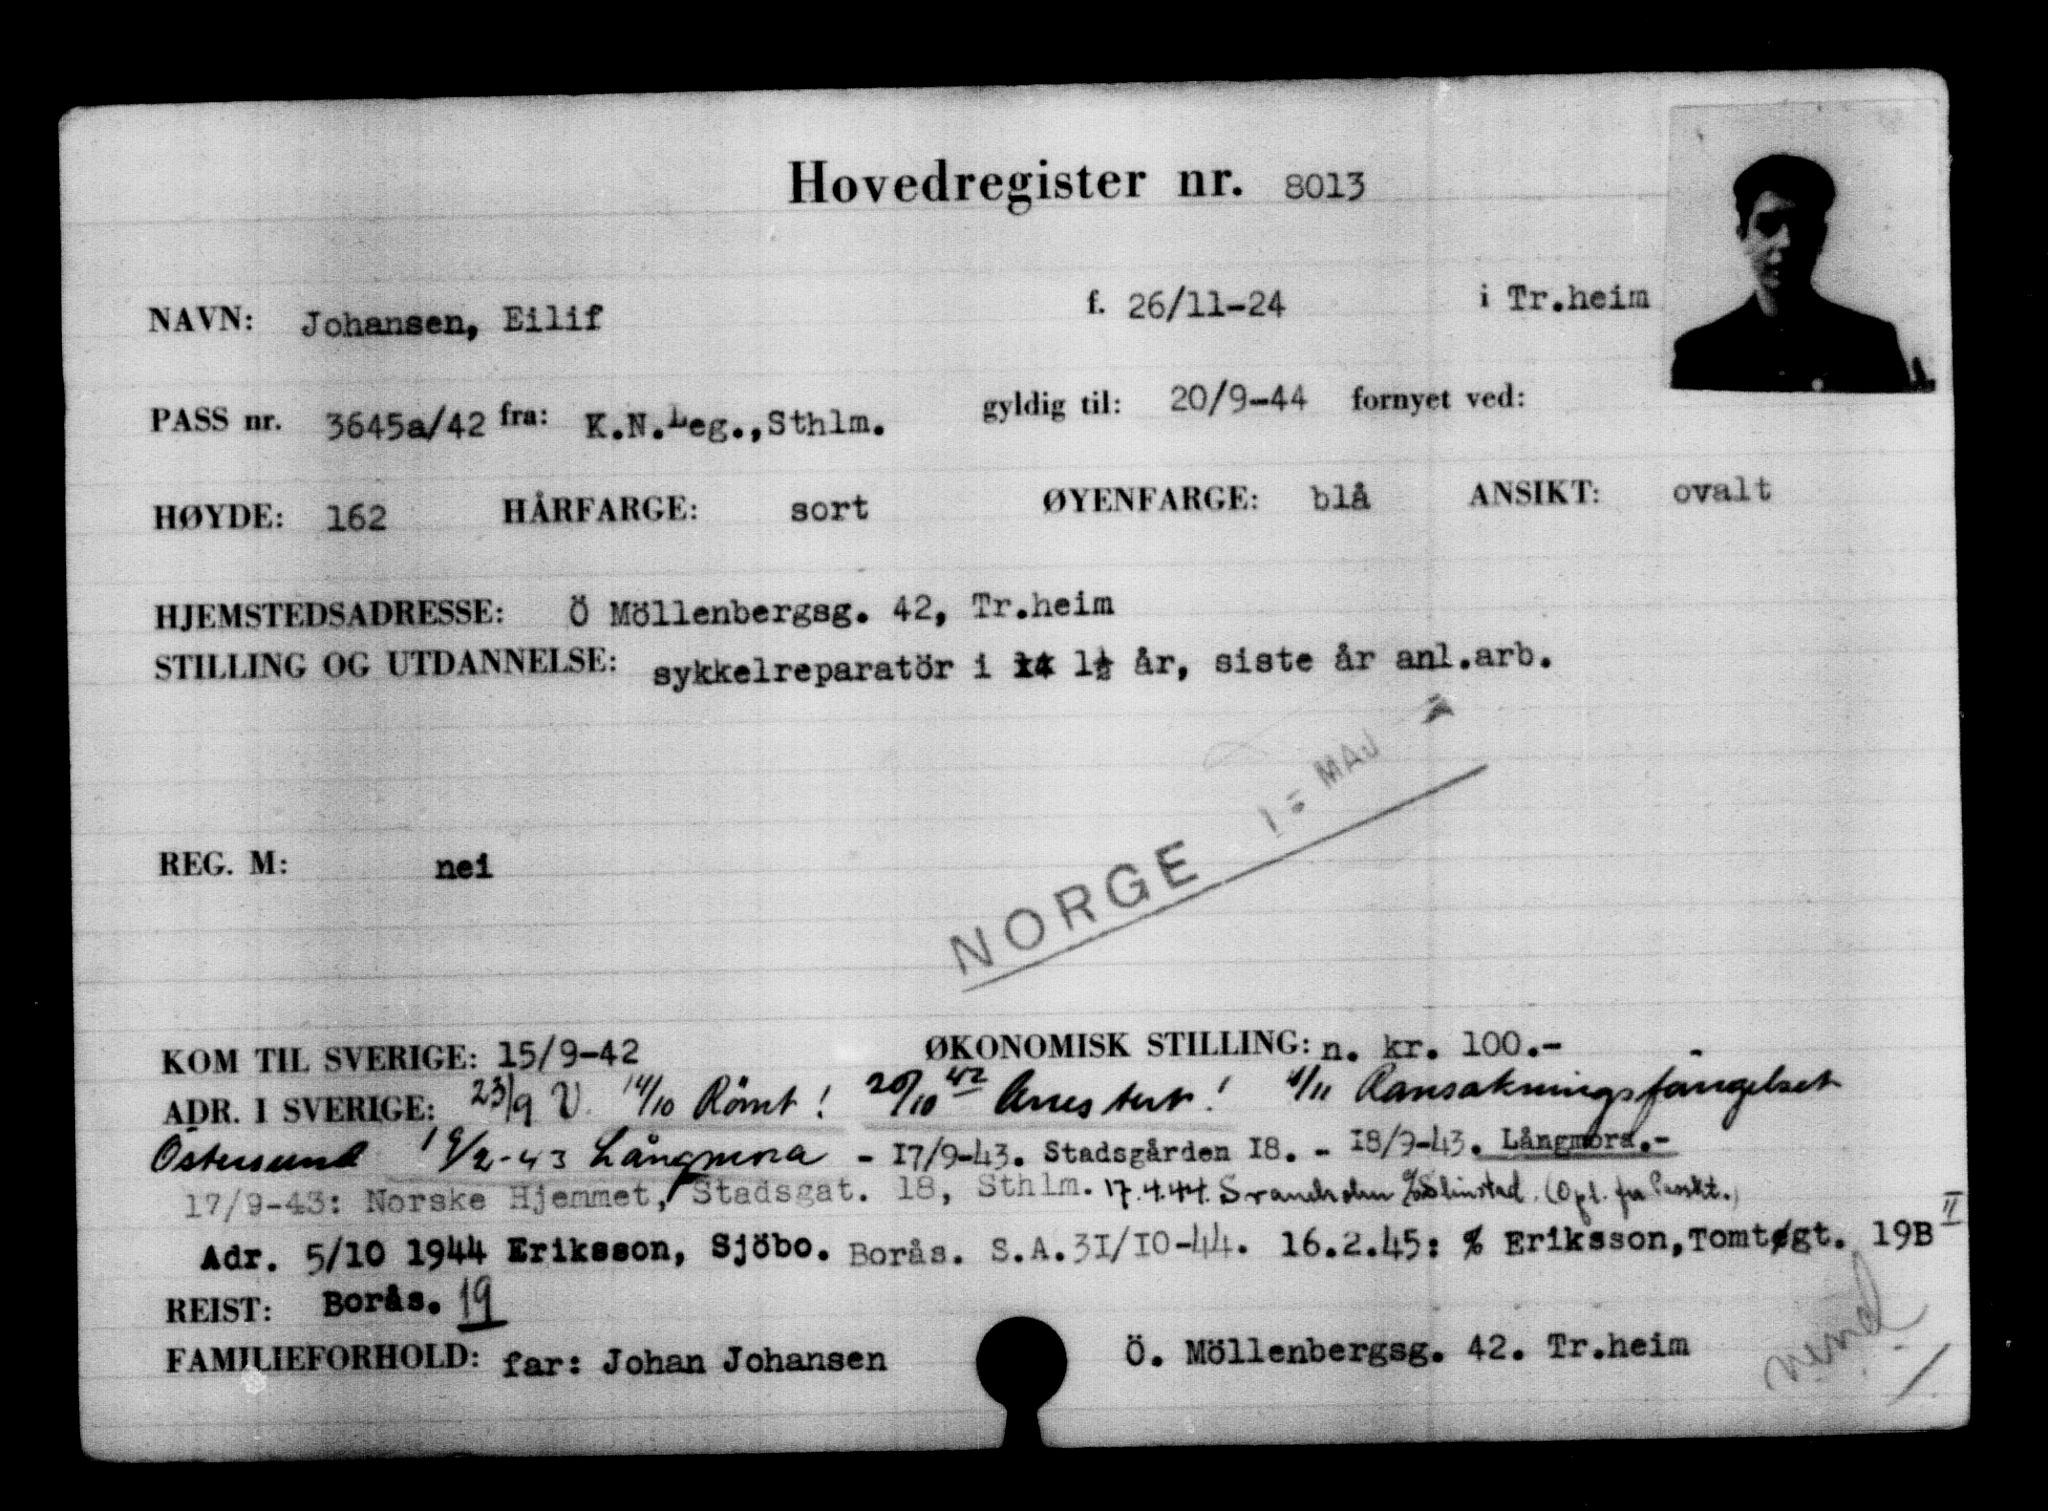 Hovedregister nr. 8013
NAVN: Johansen, Eilif f. 26/11-24 i Tr.heim
PASS nr. 3645a/42 fra: K.N.Leg.,Sthlm. gyldig til: 20/9-44 fornyet ved:
HØYDE: 162 HÅRFARGE: sort ØYENFARGE: blå ANSIKT: ovalt
HJEMSTEDSADRESSE: Ö Möllenbergsg. 42, Tr.heim
STILLING OG UTDANNELSE: sykkelreparatör i 1½ år, siste år anl.arb.
MAJ
NORGE
REG. M: nei
KOM TIL SVERIGE: 15/9-42 ØKONOMISK STILLING: n. kr. 100.-
ADR. I SVERIGE: 23/9 V. 14/10 Römt! 20/10 42 Arrestert! Ransakningsfängelset
Östersund 19/2-43 Långmora - 17/9-43. Stadsgården 18. - 18/9-43. Långmora.-
17/9-43: Norske Hjemmet, Stadsgat. 18, Sthlm. 17.4.44. (Opl. fra Passkt.)
Adr. 5/10 1944 Eriksson, Sjöbo. Borås. S.A.31/10-44. 16.2.45: % Eriksson,Tomtøgt. 19B II
REIST: Borås. 19
FAMILIEFORHOLD: far: Johan Johansen Ö. Möllenbergsg. 42. Tr.heim